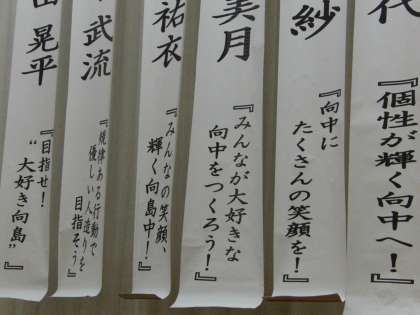 代
『個性が輝く向中へ!』
紗
『向中に
たくさんの笑顔を!』
美月
『みんなが大好きな
向中をつくろう!』
祐衣
『みんなの笑顔、
輝く向島中!』
武流
『規律ある行動で
優しい人造りを
目指そう』
晃平
『目指せ!
“大好き向島”』